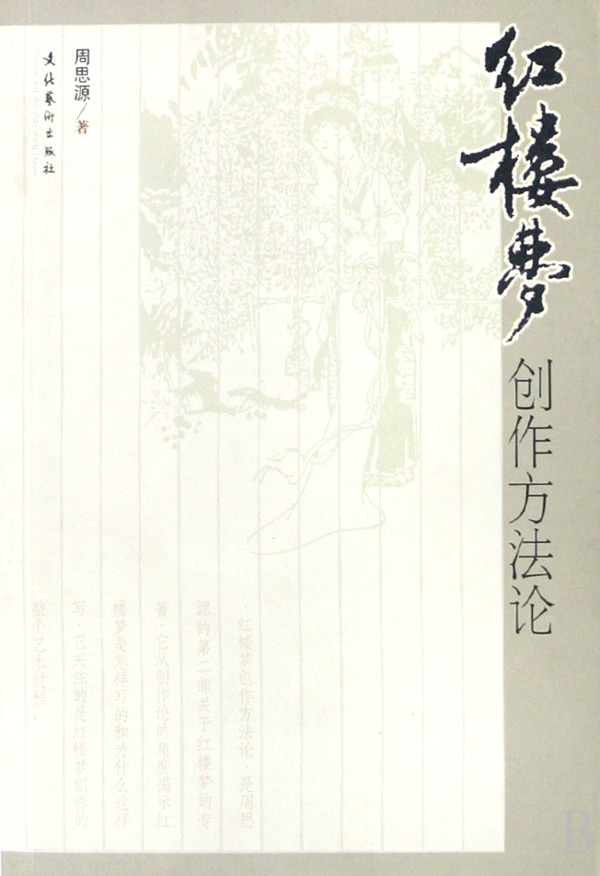 红楼梦
创作方法论
周思源/著
文化艺术出版社
红楼梦创作方法论·是周思
源的第二部关于红楼梦的专
著·它从创作论的角度揭示红
楼梦是怎样写的和为什么这样
写·它关注的是红楼梦创作的
整个艺术过程·
B